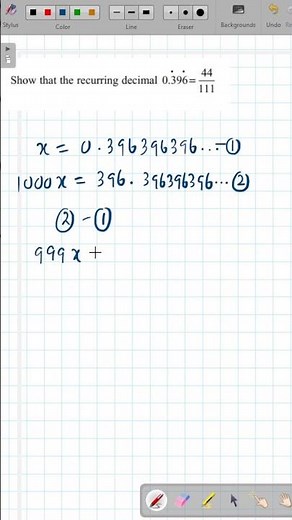 Stylus Color Line Eraser Backgrounds Undo
Show that the recurring decimal 0.3̇96̇ = 44/111
x = 0.396396396... -①
1000x = 396.396396396... ②
② - ①
999x +